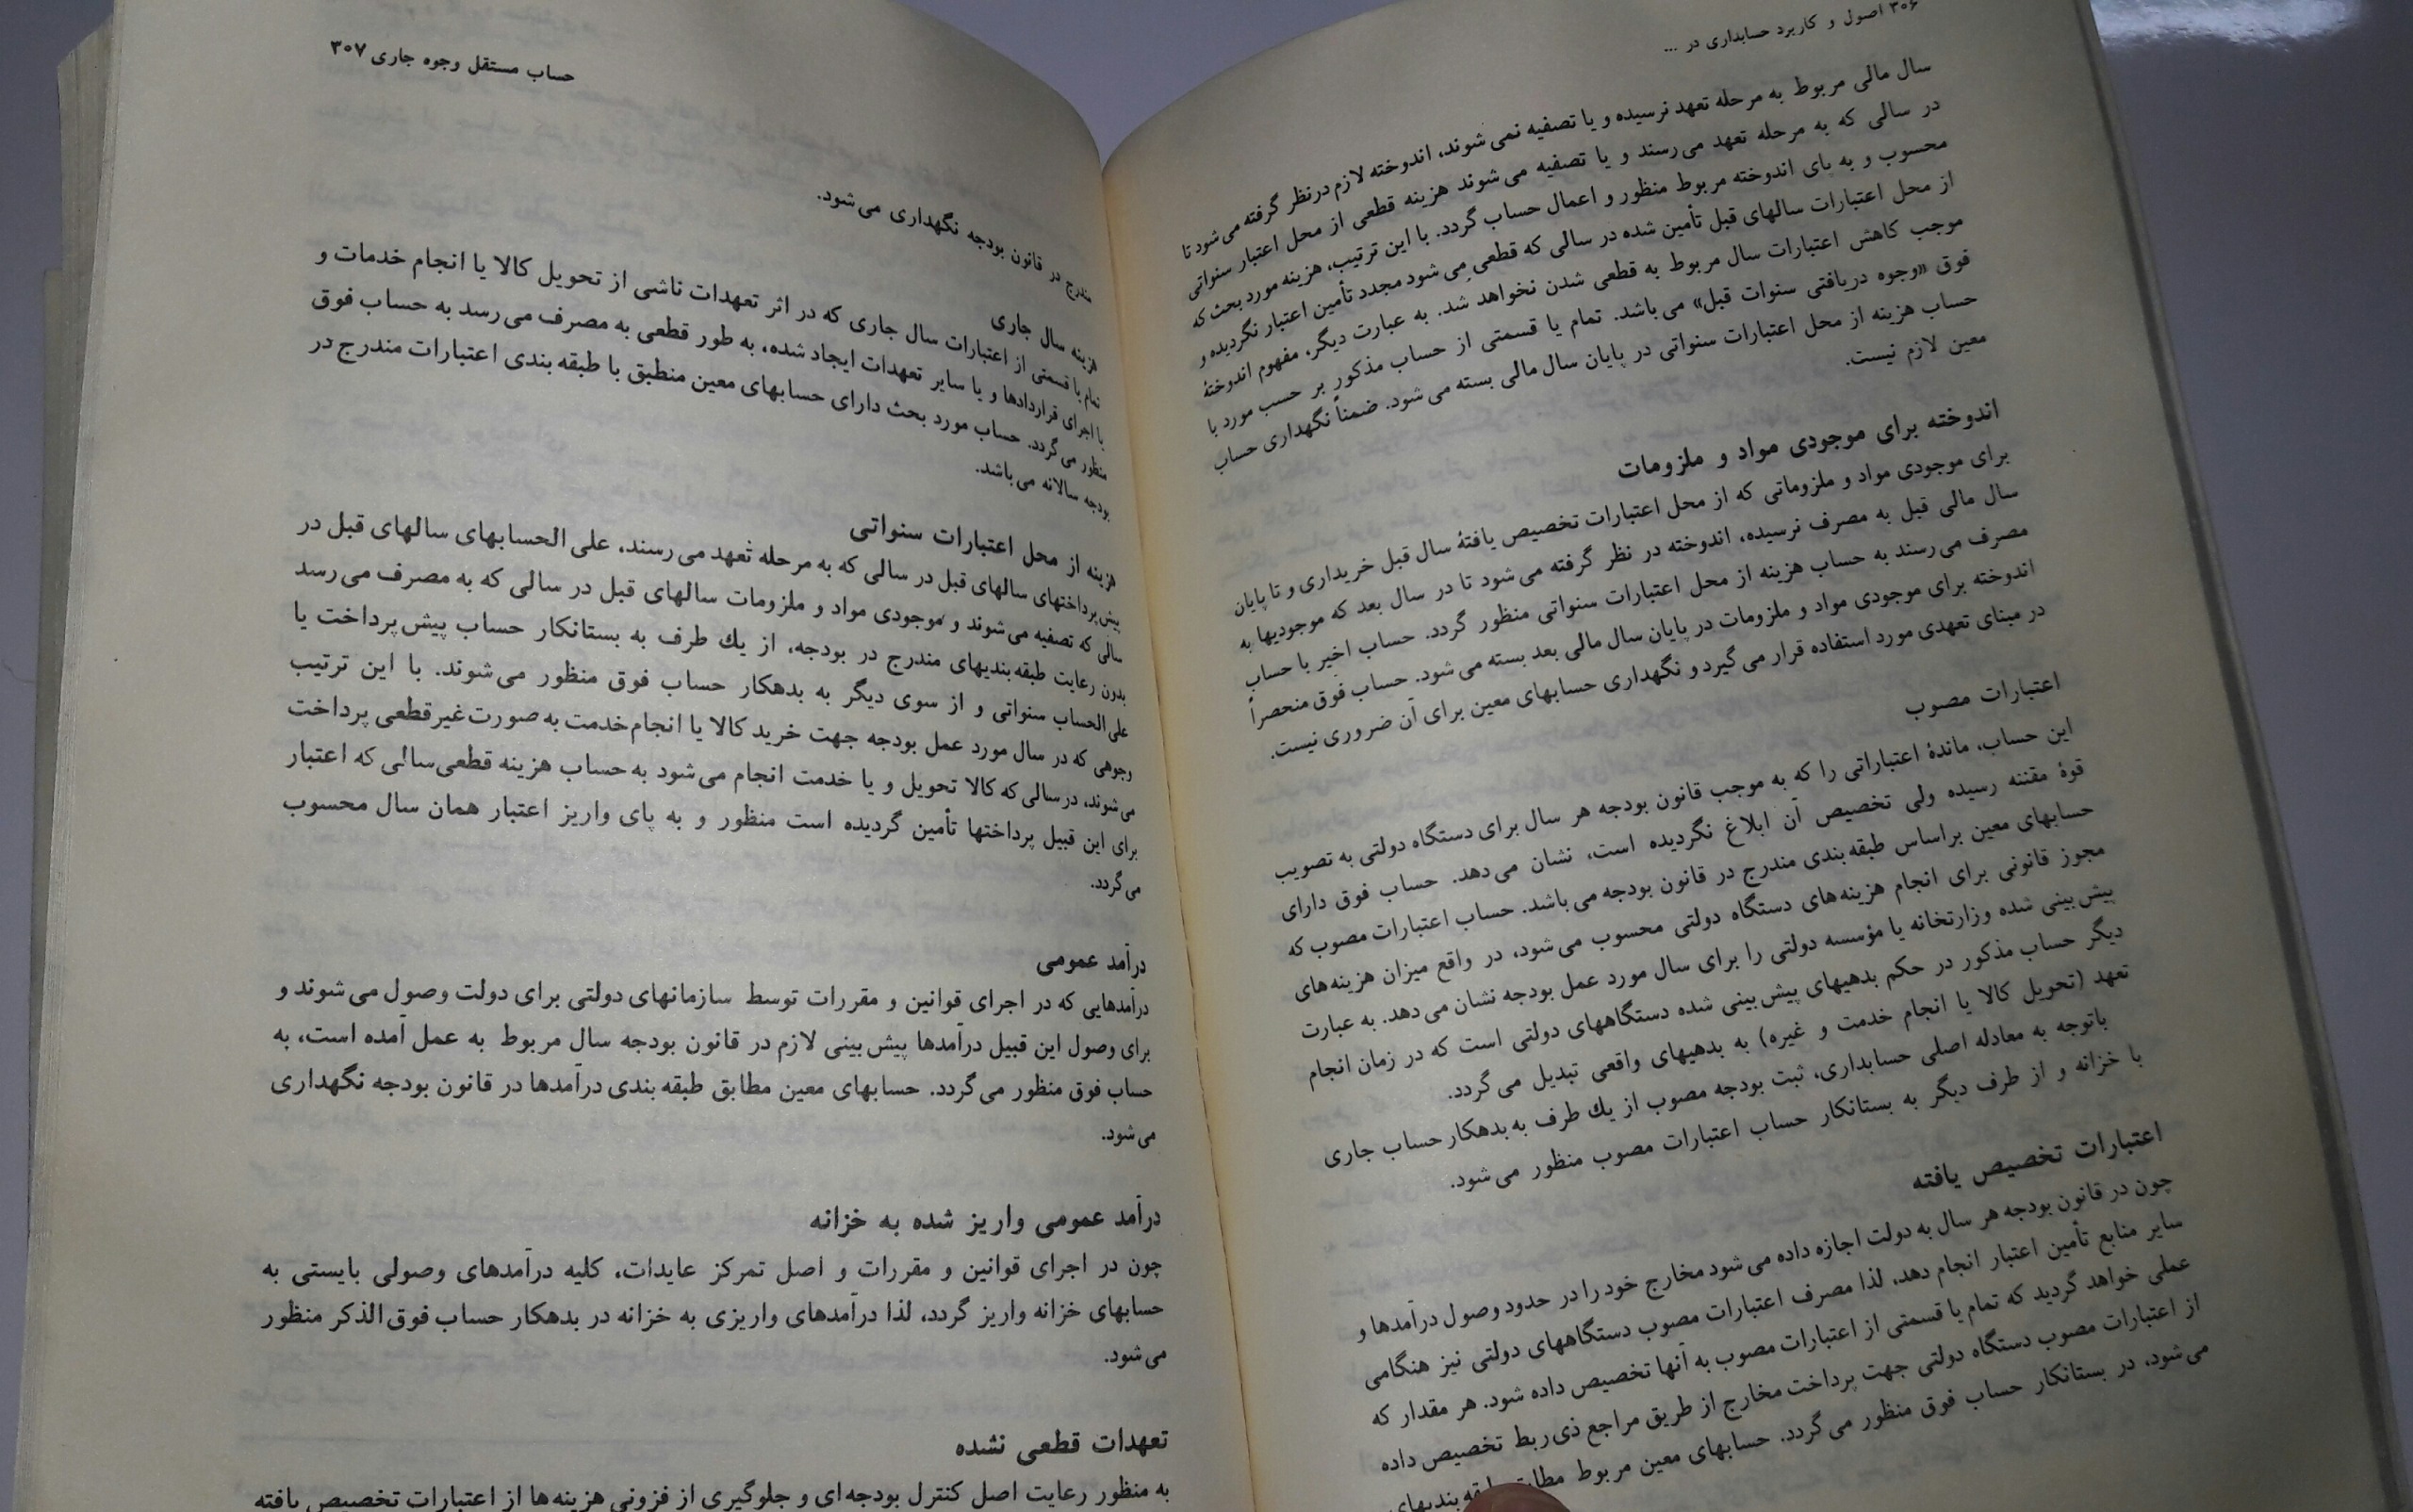 ۳۰۶ اصول و کاربرد حسابداری در ...
سال مالی مربوط به مرحله تعهد نرسیده و یا تصفیه نمی‌شوند، اندوخته لازم درنظر گرفته می‌شود تا
در سالی که به مرحله تعهد می‌رسند و یا تصفیه می‌شوند هزینه قطعی از محل اعتبار سنواتی
محسوب و به پای اندوخته مربوط منظور و اعمال حساب گردد. با این ترتیب، هزینه مورد بحث که
از محل اعتبارات سالهای قبل تأمین شده در سالی که قطعی می‌شود مجدد تأمین اعتبار نگردیده و
موجب کاهش اعتبارات سال مربوط به قطعی شدن نخواهد شد. به عبارت دیگر، مفهوم اندوختهٔ
فوق «وجوه دریافتی سنوات قبل» می‌باشد. تمام یا قسمتی از حساب مذکور بر حسب مورد با
حساب هزینه از محل اعتبارات سنواتی در پایان سال مالی بسته می‌شود. ضمناً نگهداری حساب
معین لازم نیست.
اندوخته برای موجودی مواد و ملزومات
برای موجودی مواد و ملزوماتی که از محل اعتبارات تخصیص یافتهٔ سال قبل خریداری و تا پایان
سال مالی قبل به مصرف نرسیده، اندوخته در نظر گرفته می‌شود تا در سال بعد که موجودیها به
مصرف می‌رسند به حساب هزینه از محل اعتبارات سنواتی منظور گردد. حساب اخیر با حساب
اندوخته برای موجودی مواد و ملزومات در پایان سال مالی بعد بسته می‌شود. حساب فوق منحصراً
در مبنای تعهدی مورد استفاده قرار می‌گیرد و نگهداری حسابهای معین برای آن ضروری نیست.
اعتبارات مصوب
این حساب، ماندهٔ اعتباراتی را که به موجب قانون بودجه هر سال برای دستگاه دولتی به تصویب
قوهٔ مقننه رسیده ولی تخصیص آن ابلاغ نگردیده است، نشان می‌دهد. حساب فوق دارای
حسابهای معین براساس طبقه‌بندی مندرج در قانون بودجه می‌باشد. حساب اعتبارات مصوب که
مجوز قانونی برای انجام هزینه‌های دستگاه دولتی محسوب می‌شود، در واقع میزان هزینه‌های
پیش‌بینی شده وزارتخانه یا مؤسسه دولتی را برای سال مورد عمل بودجه نشان می‌دهد. به عبارت
دیگر حساب مذکور در حکم بدهیهای پیش‌بینی شده دستگاههای دولتی است که در زمان انجام
تعهد (تحویل کالا یا انجام خدمت و غیره) به بدهیهای واقعی تبدیل می‌گردد.
باتوجه به معادله اصلی حسابداری، ثبت بودجه مصوب از یك طرف به بدهکار حساب جاری
با خزانه و از طرف دیگر به بستانکار حساب اعتبارات مصوب منظور می‌شود.
اعتبارات تخصیص یافته
چون در قانون بودجه هر سال به دولت اجازه داده می‌شود مخارج خود را در حدود وصول درآمدها و
سایر منابع تأمین اعتبار انجام دهد، لذا مصرف اعتبارات مصوب دستگاههای دولتی نیز هنگامی
عملی خواهد گردید که تمام یا قسمتی از اعتبارات مصوب به آنها تخصیص داده شود. هر مقدار که
از اعتبارات مصوب دستگاه دولتی جهت پرداخت مخارج از طریق مراجع ذی‌ربط تخصیص داده
می‌شود، در بستانکار حساب فوق منظور می‌گردد. حسابهای معین مربوط
حساب مستقل وجوه جاری ۳۰۷
مندرج در قانون بودجه نگهداری می‌شود.
هزینه سال جاری
تمام یا قسمتی از اعتبارات سال جاری که در اثر تعهدات ناشی از تحویل کالا یا انجام خدمات و
یا اجرای قراردادها و یا سایر تعهدات ایجاد شده، به طور قطعی به مصرف می‌رسد به حساب فوق
منظور می‌گردد. حساب مورد بحث دارای حسابهای معین منطبق با طبقه‌بندی اعتبارات مندرج در
بودجه سالانه می‌باشد.
هزینه از محل اعتبارات سنواتی
پیش‌پرداختهای سالهای قبل در سالی که به مرحله تعهد می‌رسند، علی‌الحسابهای سالهای قبل در
سالی که تصفیه می‌شوند و موجودی مواد و ملزومات سالهای قبل در سالی که به مصرف می‌رسد
بدون رعایت طبقه‌بندیهای مندرج در بودجه، از یك طرف به بستانکار حساب پیش‌پرداخت یا
علی‌الحساب سنواتی و از سوی دیگر به بدهکار حساب فوق منظور می‌شوند. با این ترتیب
وجوهی که در سال مورد عمل بودجه جهت خرید کالا یا انجام‌خدمت به صورت غیرقطعی پرداخت
می‌شوند، درسالی که کالا تحویل و یا خدمت انجام می‌شود به حساب هزینه قطعی‌سالی که اعتبار
برای این قبیل پرداختها تأمین گردیده است منظور و به پای واریز اعتبار همان سال محسوب
می‌گردد.
درآمد عمومی
درآمدهایی که در اجرای قوانین و مقررات توسط سازمانهای دولتی برای دولت وصول می‌شوند و
برای وصول این قبیل درآمدها پیش‌بینی لازم در قانون بودجه سال مربوط به عمل آمده است، به
حساب فوق منظور می‌گردد. حسابهای معین مطابق طبقه‌بندی درآمدها در قانون بودجه نگهداری
می‌شود.
درآمد عمومی واریز شده به خزانه
چون در اجرای قوانین و مقررات و اصل تمرکز عایدات، کلیه درآمدهای وصولی بایستی به
حسابهای خزانه واریز گردد، لذا درآمدهای واریزی به خزانه در بدهکار حساب فوق‌الذکر منظور
می‌شود.
تعهدات قطعی نشده
به منظور رعایت اصل کنترل بودجه‌ای و جلوگیری از فزونی هزینه‌ها از اعتبارات تخصیص یافته